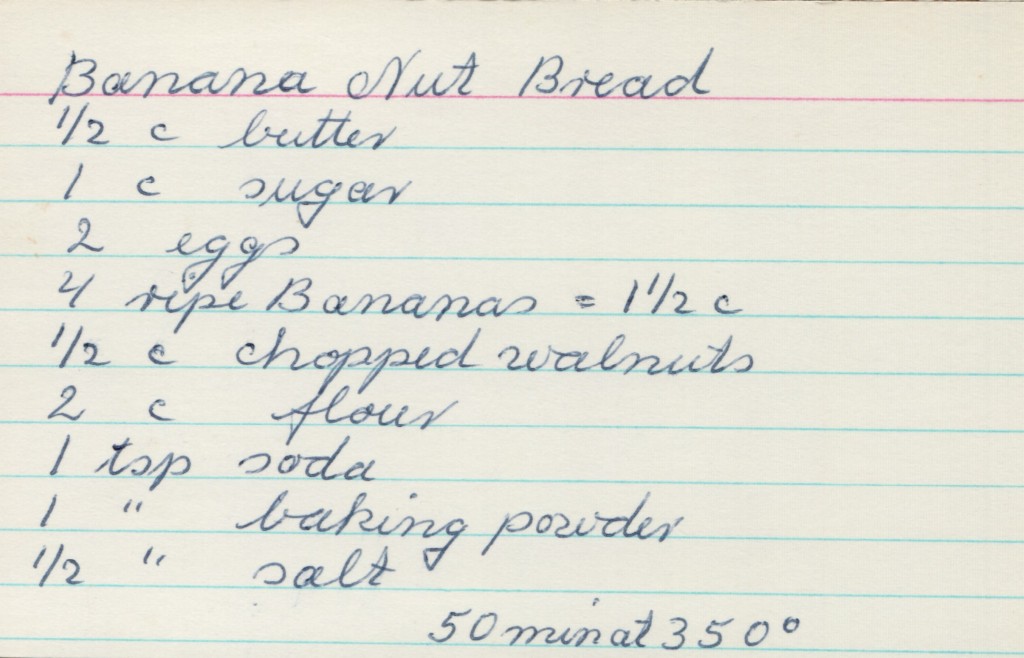 Banana Nut Bread
1/2 c butter
1 c sugar
2 eggs
4 ripe Bananas = 1 1/2 c
1/2 c chopped walnuts
2 c flour
1 tsp soda
1 " baking powder
1/2 " salt
50 min at 350°